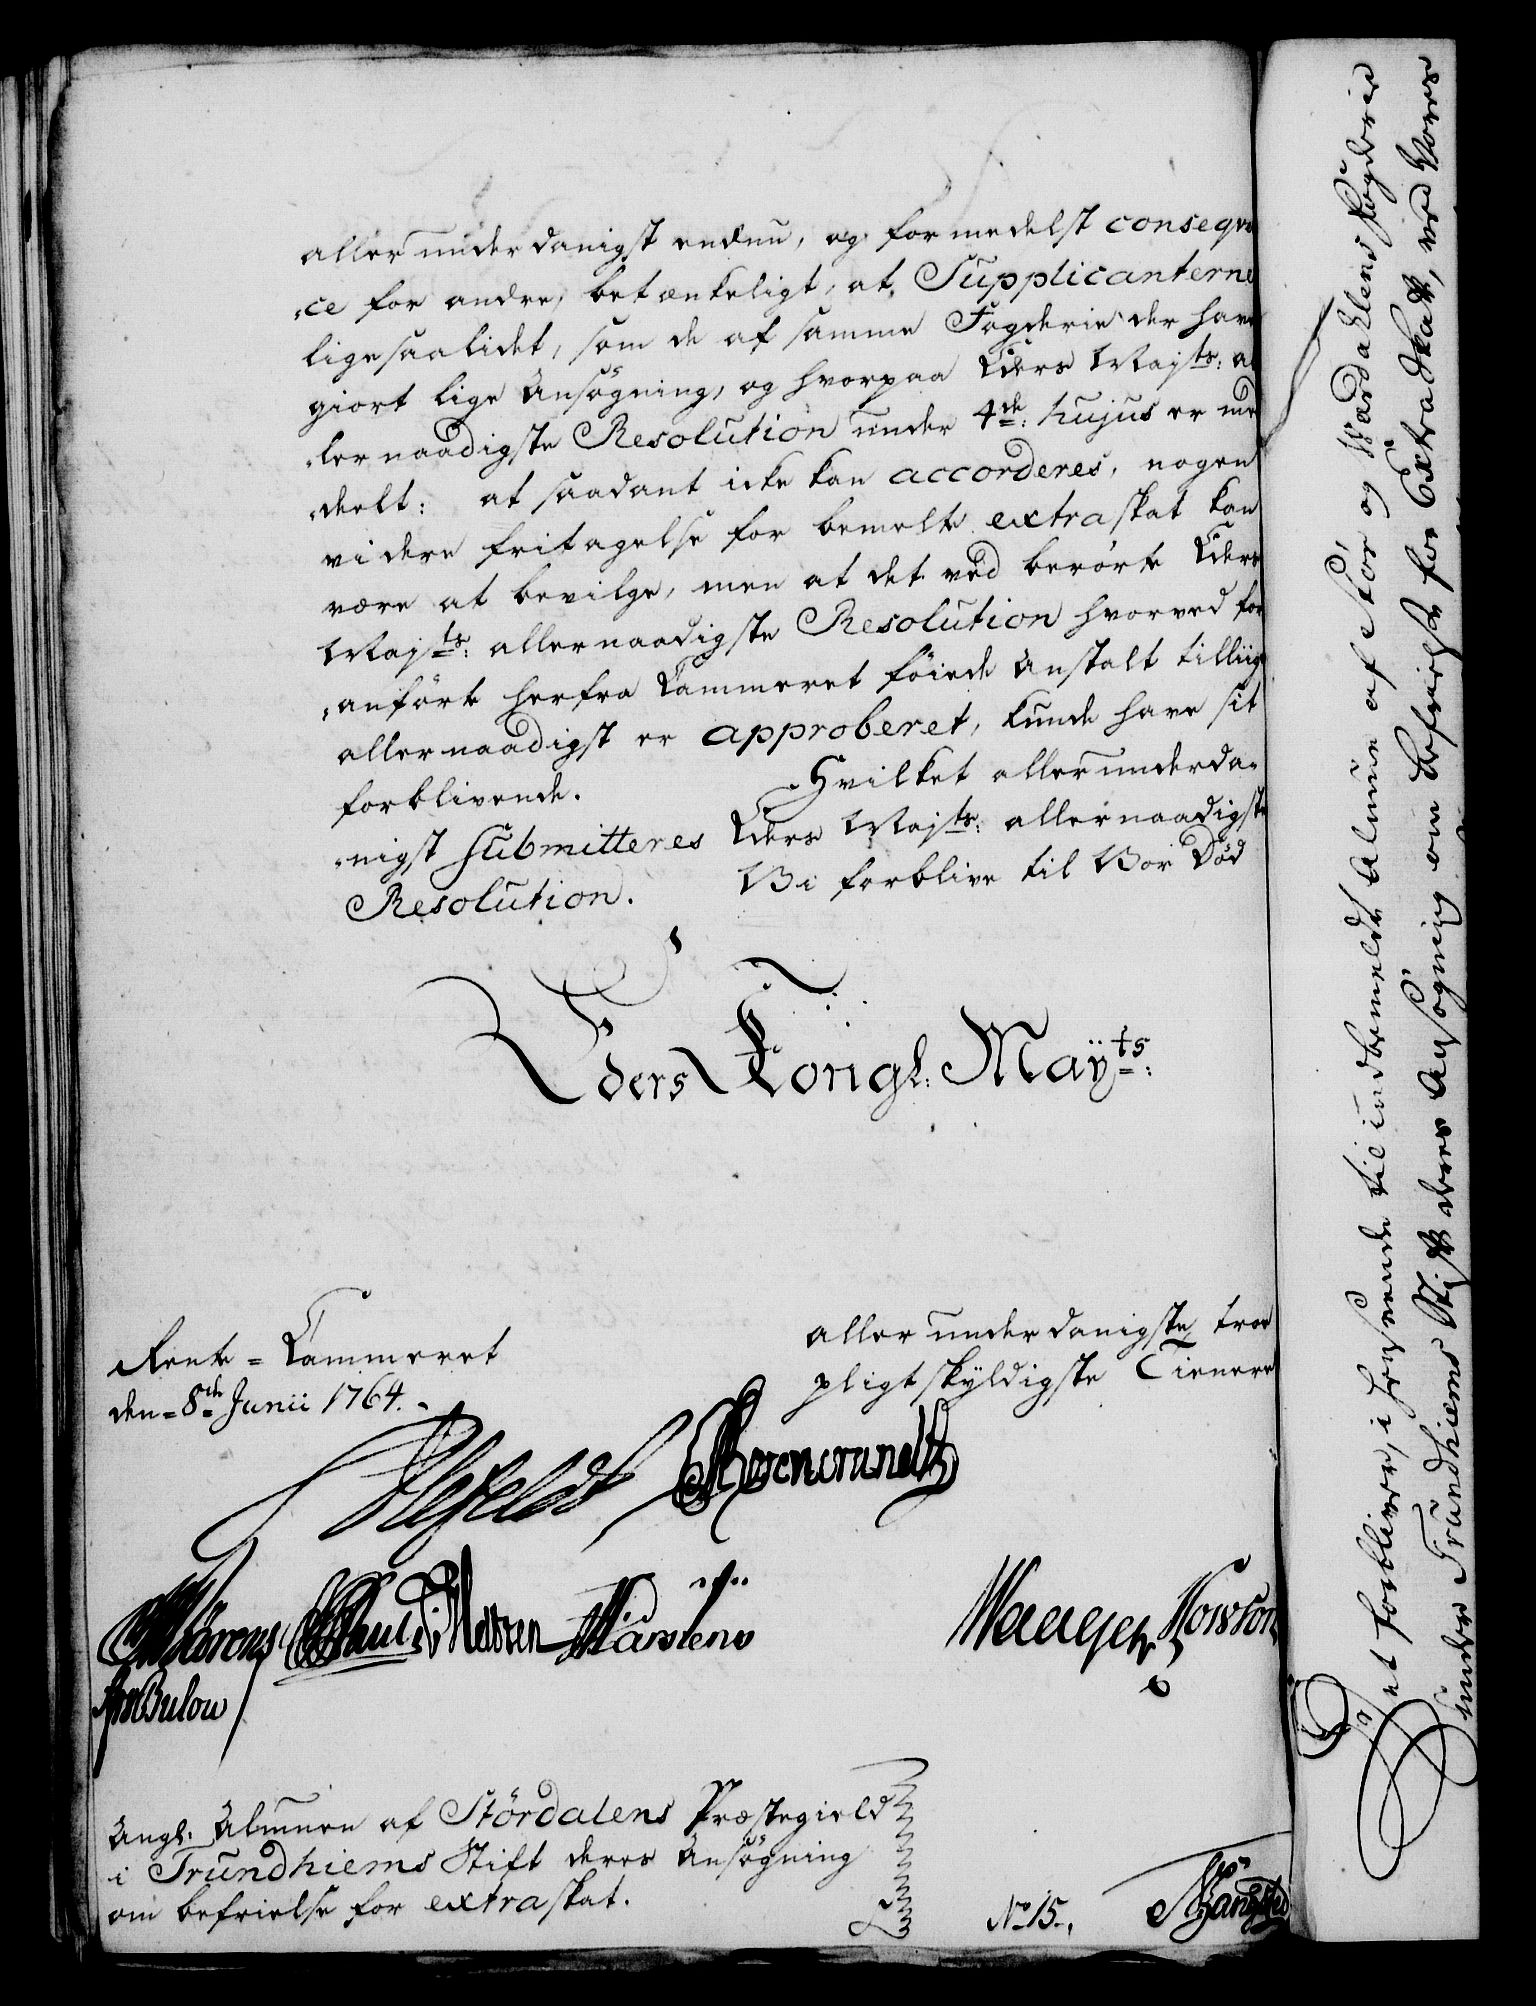 allerunderdanigst endnu, og formedelst conseqve
„ce for andre, betænkeligt, at Supplicanterne
ligesaalidet, som de af samme Fogderie der have
giort lige Ansøgning, og hvorpaa Eders Majts: al
„lernaadigste Resolution under 4de: hujus er med
„deelt: at saadant icke kan accorderes, nogen
videre fritagelse for bemelte extraskat kan
være at bevilge, men at det ved berørte Eders
Majts: allernaadigste Resolution hvorved for
„anførte herfra Cammeret føiede Anstalt tilliige
allernaadigst er approberet, kunde have sit
forblivende. Hvilket allerunderda„
„nigst submitteres Eders Majts: allernaadigste
Resolution. Vi forblive til Vor Død
Eders Kongl: Maÿts:
Rente-Cammeret
den 8de Junii 1764.
allerunderdanigste troe
pligtskÿldigste Tienere
Ahlefeldt Rosencrandtz
Martens
JvBulow
Angl. Almuen af Stördalens Præstegield
i Trundhiems Stift deres Ansøgning
om befrielse for extraskat.
No 15.
Det forbliver, i henseende til indbemeldte Almue af Stör og Værdahlens Fogderie
under Trundhiems Stift deres Ansøgning om befrielse for Extraskatt, ved Vores